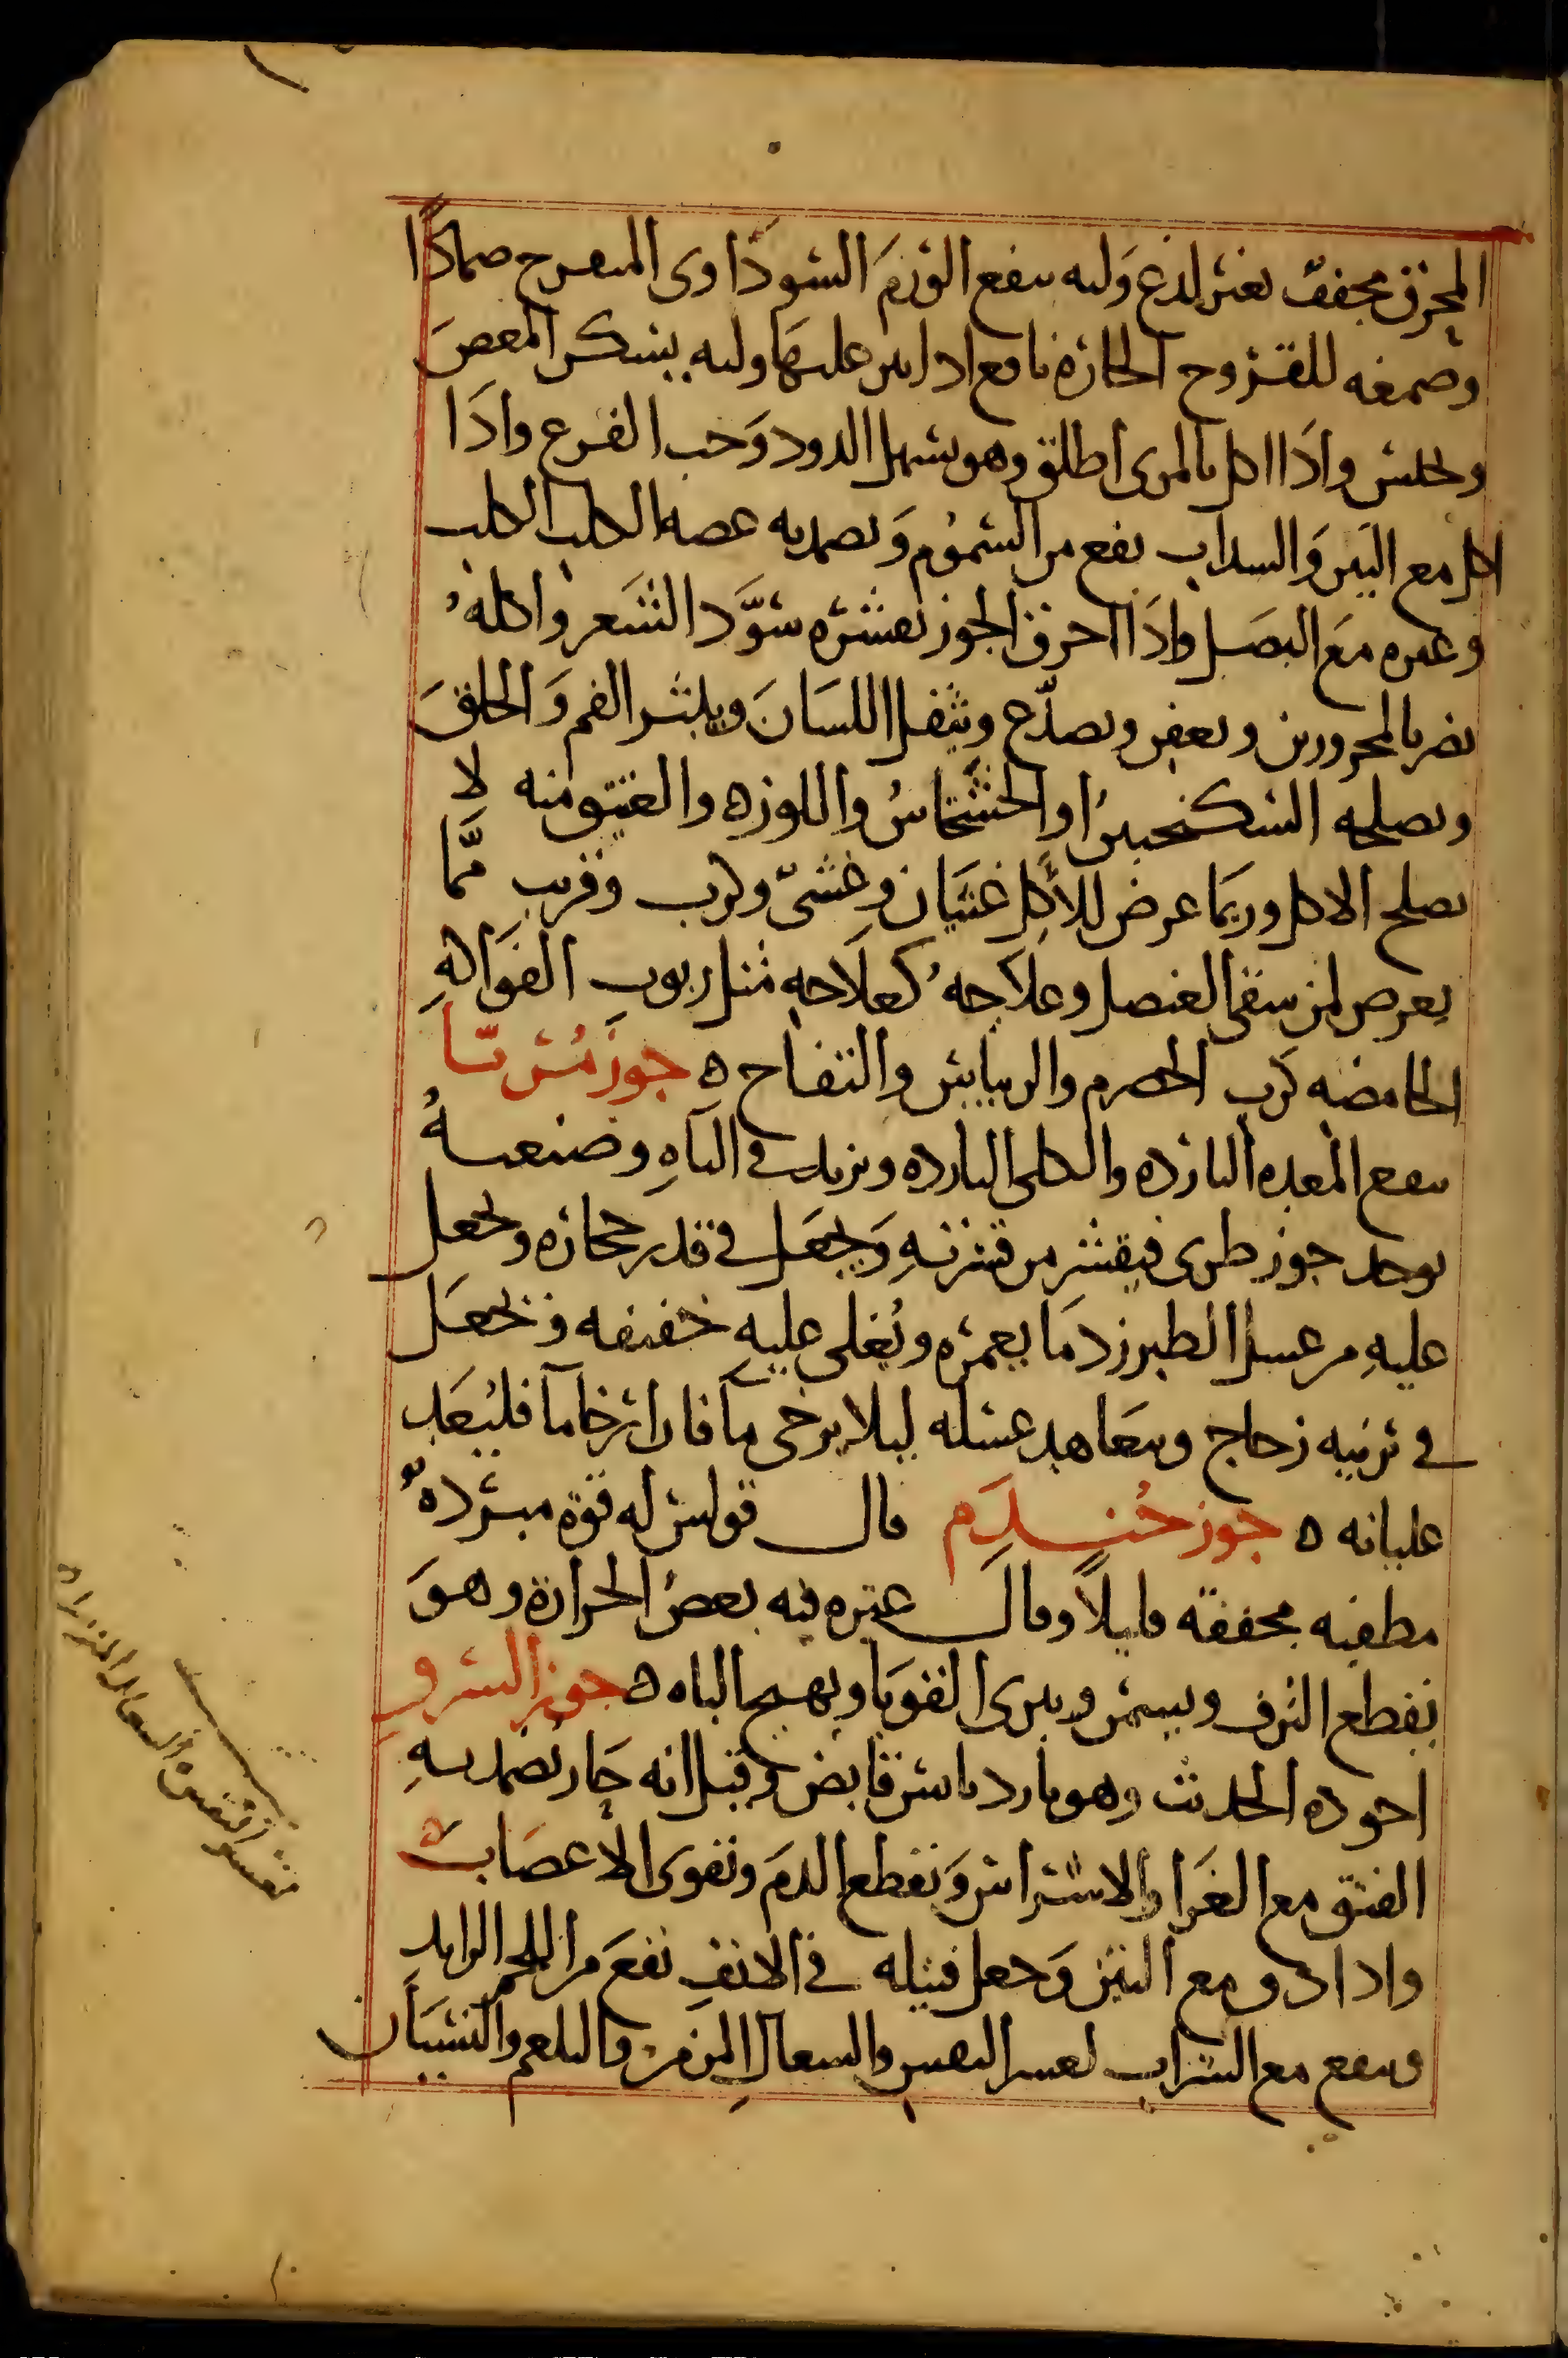 المحرق مجفف بغير لدع ولبه ينفع الورم السوداوي المتقرح ضمادًا
وصمغه للقروح الحارة نافع اذا نثر عليها ولبه يسكن المغص
ويحبس واذا اكل بالمرى اطلق وهو يسهل الدود وحب القرع واذا
اكل مع التين والسداب نفع من السموم ويضمد به عضه الكلب الكلب
وغيره مع البصل واذا احرق الجوز بقشره سود الشعر واكله
يضر بالمحرورين ويعفن ويصدّع ويثقل اللسان ويبثر الفم والحلق
ويصلحه السكنجبين او الخشخاش واللوز ه والعتيق منه لا
يصلح الاكل وربما عرض للاكل غثيان وغشىّ وكرب وقريب ممّا
يعرض لمن سقى العنصل وعلاجه كعلاجه مثل ربوب الفواكه
الحامضه كرب الحصرم والريباس والتفاح ه جوز مُربّا
ينفع المعده البارده والكلى البارده ويزيد في الباه وصنعته
يوخد جوز طرى فيقشر من قشرته ويجعل في قدر حجاره ويجعل
عليه من عسل الطبرزد ما يغمره ويغلى عليه خفيفه ويجعل
في برنيه زجاج ويتعاهد عسله ليلا يرخى ماً فان ارخا ماً فليعد
غليانه ه جوز جندم قال قولس له قوة مبرّدة
مطفيه مجففة قليلاً وقال غيره فيه بعض الحرارة وهو
يقطع النزف ويسمن ويبرى القوبا ويهيج الباه ه جوز السرو
اجوده الحديث وهو بارد يابس قابض وقيل انه حار يضمد به
الفتق مع الغرا والاشراس ويقطع الدم ويقوى الاعصاب
واذا دق مع التين وجعل فتيله في الانف نفع من اللحم الزايد
وينفع مع الشراب لعسر النفس والسعال المزمن والبلغم والنسيان